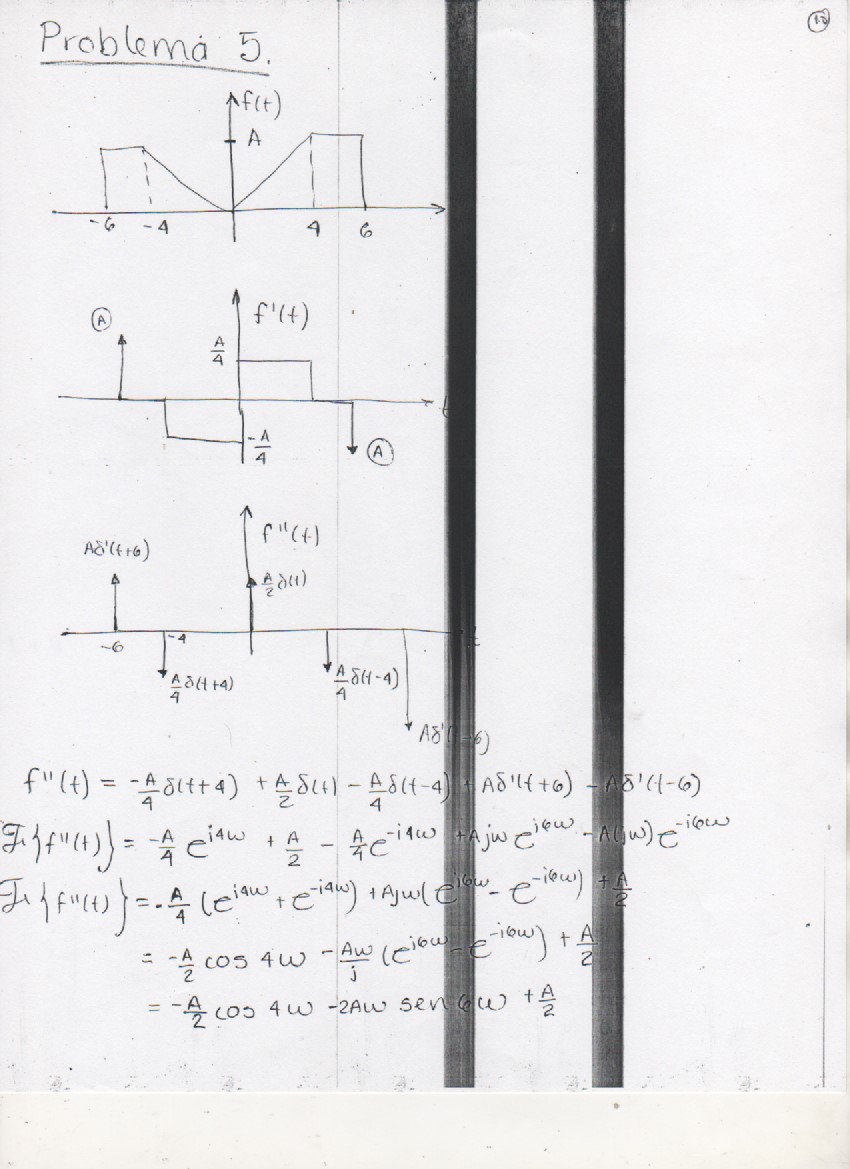 10
Problema 5.
f(t)
A
-6 -4 4 6
A
f'(t)
A/4
t
-A/4
A
f''(t)
Aδ'(t+6)
A/2 δ(t)
-6 -4
t
A/4 δ(t+4)
A/4 δ(t-4)
Aδ'(t-6)
f''(t) = -A/4 δ(t+4) + A/2 δ(t) - A/4 δ(t-4) + Aδ'(t+6) - Aδ'(t-6)
F{f''(t)} = -A/4 e^{j4ω} + A/2 - A/4 e^{-j4ω} + Ajω e^{j6ω} - A(jω) e^{-j6ω}
F{f''(t)} = -A/4 (e^{j4ω} + e^{-j4ω}) + Ajω (e^{j6ω} - e^{-j6ω}) + A/2
= -A/2 cos 4ω - Aω/j (e^{j6ω} - e^{-j6ω}) + A/2
= -A/2 cos 4ω - 2Aω sen 6ω + A/2